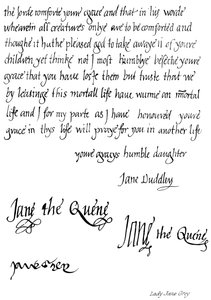 the lorde comforte youre grace and that in his worde
wherein all creatures onlye are to be comforted and
thoughe it hathe pleased god to take awaye ii of youre
children yet thinke not I most humblye beseche youre
grace that you have loste them but truste that we
by leavinge this mortall life have wunne an immortal
life and I for my parte as I have honoured youre
grace in thys life will praye for you in another life
youre gracys humble daughter
Jane Duddley
Jane the Quene
Jane the Quene
Lady Jane Grey